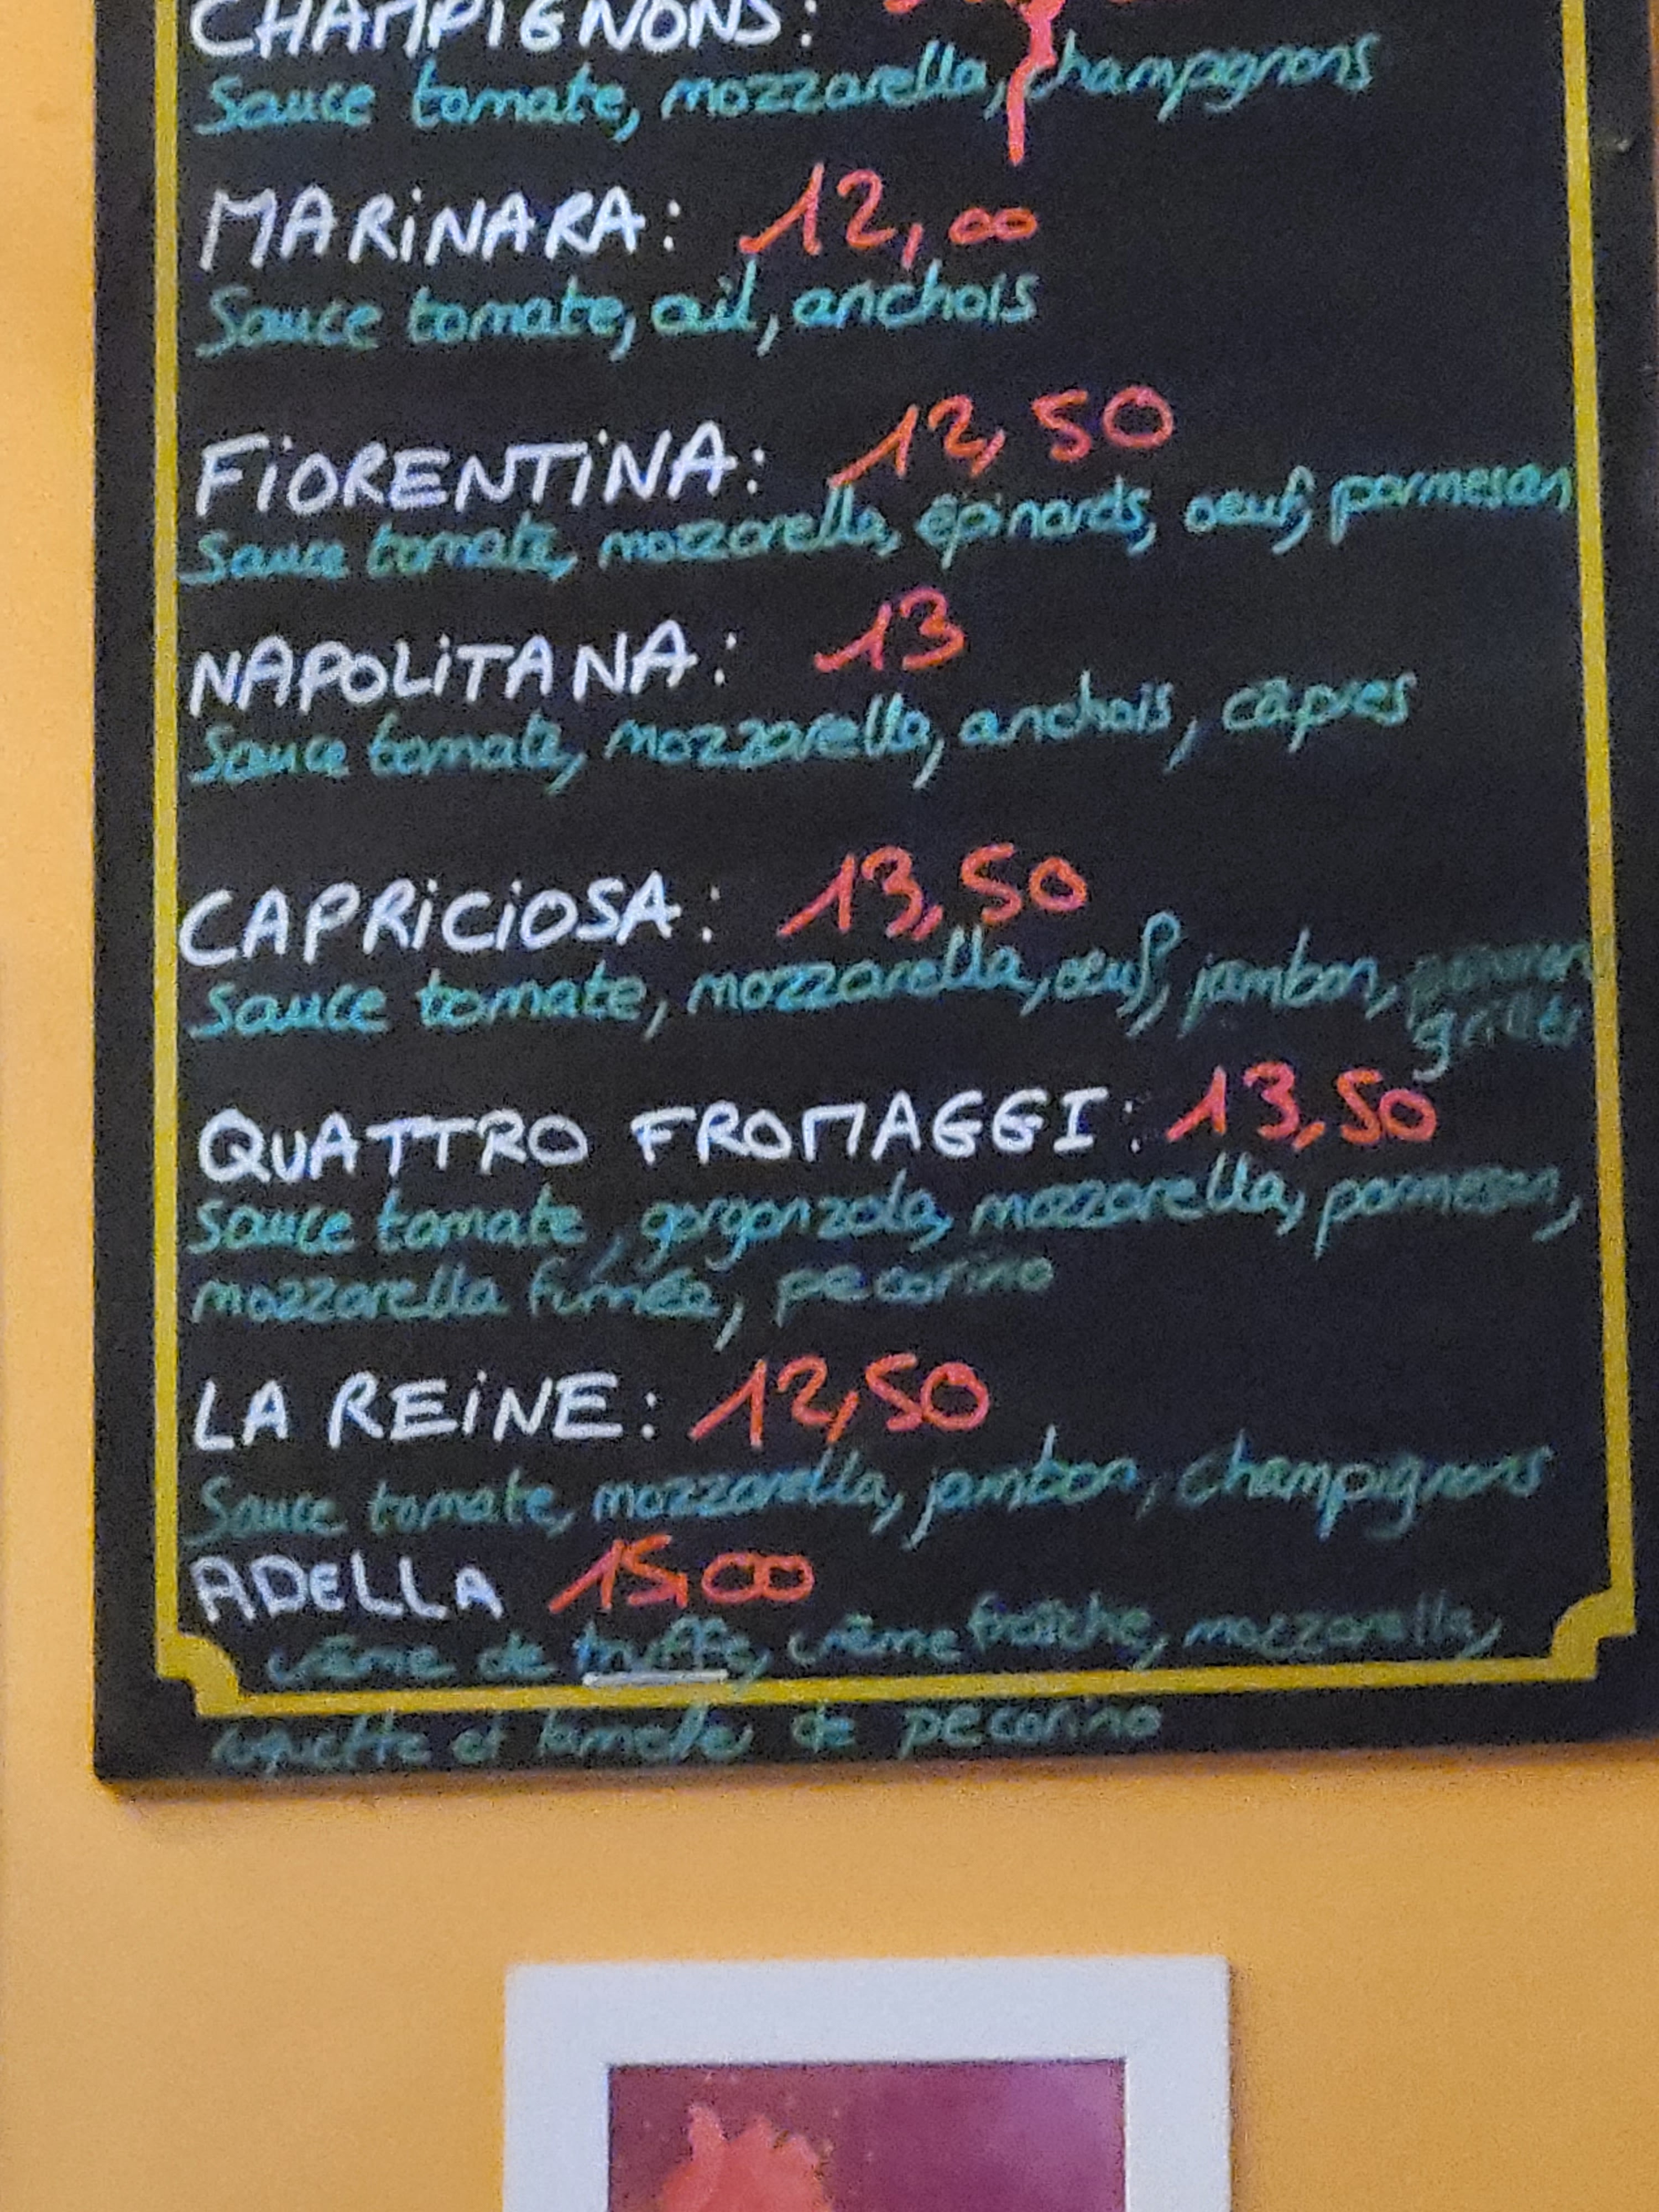 CHAMPIGNONS:
Sauce tomate, mozzarella, champignons
MARiNARA: 12,00
Sauce tomate, ail, anchois
FiORENTiNA: 12,50
Sauce tomate, mozzarella, épinards, oeuf, parmesan
NAPOLiTANA: 13
Sauce tomate, mozzarella, anchois, câpres
CAPRiCiOSA: 13,50
Sauce tomate, mozzarella, oeuf, jambon,
grillés
QUATTRO FROMAGGI: 13,50
Sauce tomate, gorgonzola, mozzarella, parmesan,
mozzarella fumée, pecorino
LA REiNE: 12,50
Sauce tomate, mozzarella, jambon, champignons
ADELLA 15,00
crème de truffe, crème fraîche, mozzarella,
roquette et lamelle de pecorino